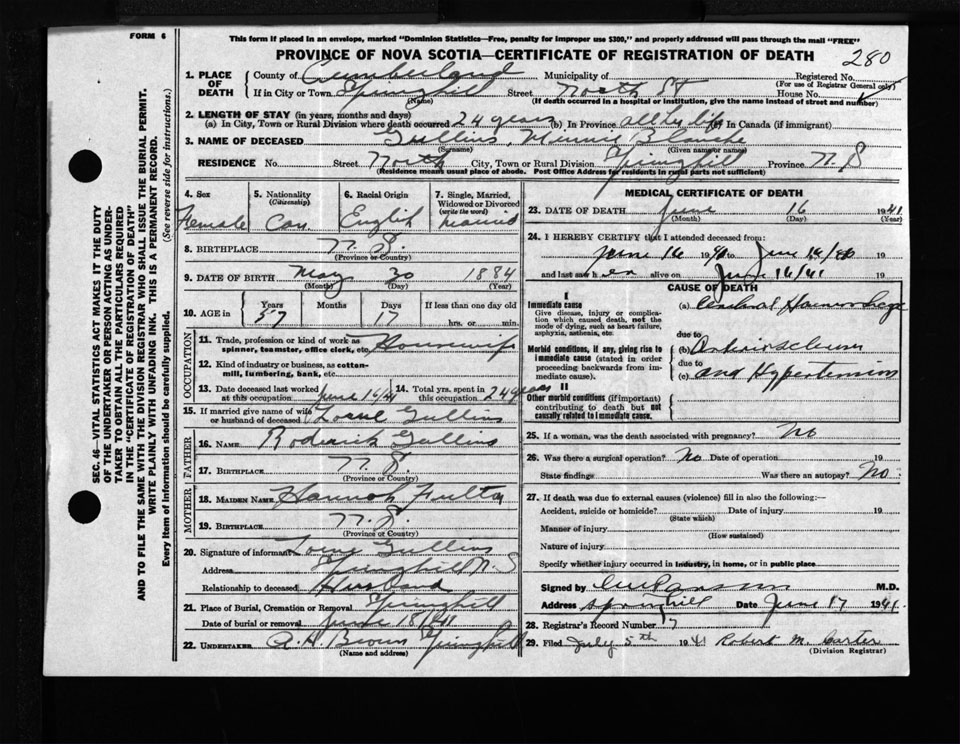 FORM 6
This form if placed in an envelope, marked "Dominion Statistics—Free, penalty for improper use $300," and properly addressed will pass through the mail "FREE"
PROVINCE OF NOVA SCOTIA—CERTIFICATE OF REGISTRATION OF DEATH
280
SEC. 46—VITAL STATISTICS ACT MAKES IT THE DUTY
OF THE UNDERTAKER OR PERSON ACTING AS UNDER-
TAKER TO OBTAIN ALL THE PARTICULARS REQUIRED
IN THE "CERTIFICATE OF REGISTRATION OF DEATH"
AND TO FILE THE SAME WITH THE DIVISION REGISTRAR WHO SHALL ISSUE THE BURIAL PERMIT.
WRITE PLAINLY WITH UNFADING INK. THIS IS A PERMANENT RECORD.
Every item of Information should be carefully supplied. (See reverse side for instructions.)
1. PLACE OF DEATH
County of Cumberland Municipality of Registered No.
(For use of Registrar General only)
If in City or Town Springhill Street North St House No.
(Name) (If death occurred in a hospital or institution, give the name instead of street and number)
2. LENGTH OF STAY (in years, months and days)
(a) In City, Town or Rural Division where death occurred 24 years (b) In Province all her life (c) In Canada (if immigrant)
3. NAME OF DECEASED Gullins, Minnie Blanche
(Surname) (Given name or names)
RESIDENCE No. Street North City, Town or Rural Division Springhill Province N.S
(Residence means usual place of abode. Post Office Address for residents in rural parts not sufficient)
4. Sex
Female
5. Nationality
(Citizenship)
Can.
6. Racial Origin
English
7. Single, Married, Widowed or Divorced
(write the word)
married
8. BIRTHPLACE N.S.
(Province or Country)
9. DATE OF BIRTH May 30 1884
(Month) (Day) (Year)
10. AGE in Years 57 Months Days 17 If less than one day old
hrs. or min.
OCCUPATION
11. Trade, profession or kind of work as
spinner, teamster, office clerk, etc. Housewife
12. Kind of industry or business, as cotton-
mill, lumbering, bank, etc.
13. Date deceased last worked at this occupation June 16/41
14. Total yrs. spent in this occupation 24 years
15. If married give name of wife
or husband of deceased Lorne Gullins
FATHER
16. NAME Roderick Gullins
17. BIRTHPLACE N.S.
(Province or Country)
MOTHER
18. MAIDEN NAME Hannah Fulton
19. BIRTHPLACE N.S.
(Province or Country)
20. Signature of informant Lorne Gullins
Address Springhill N.S
Relationship to deceased Husband
21. Place of Burial, Cremation or Removal Springhill
Date of burial or removal June 18/41
22. UNDERTAKER A H Brown Springhill
(Name and address)
MEDICAL CERTIFICATE OF DEATH
23. DATE OF DEATH June 16 1941
(Month) (Day) (Year)
24. I HEREBY CERTIFY that I attended deceased from:
June 16 19 to June 16/ 19
and last saw h er alive on June 16/41 19
CAUSE OF DEATH
I
Immediate cause
Give disease, injury or complica-
tion which caused death, not the
mode of dying, such as heart failure,
asphyxia, asthenia, etc.
(a) Cerebral Haemorrhage
due to
Morbid conditions, if any, giving rise to
immediate cause (stated in order
proceeding backwards from im-
mediate cause).
(b)
due to
(c) and Hypertension
II
Other morbid conditions (if important)
contributing to death but not
causally related to immediate cause.
25. If a woman, was the death associated with pregnancy? No
26. Was there a surgical operation? No Date of operation 19
State findings Was there an autopsy? No.
27. If death was due to external causes (violence) fill in also the following:—
Accident, suicide or homicide? Date of injury 19
(State which)
Manner of injury
(How sustained)
Nature of injury
Specify whether injury occurred in Industry, in home, or in public place
Signed by M.D.
Address Springhill Date June 17 1941.
28. Registrar's Record Number 17
29. Filed July 5th 1941 Robert M. Carter
(Division Registrar)